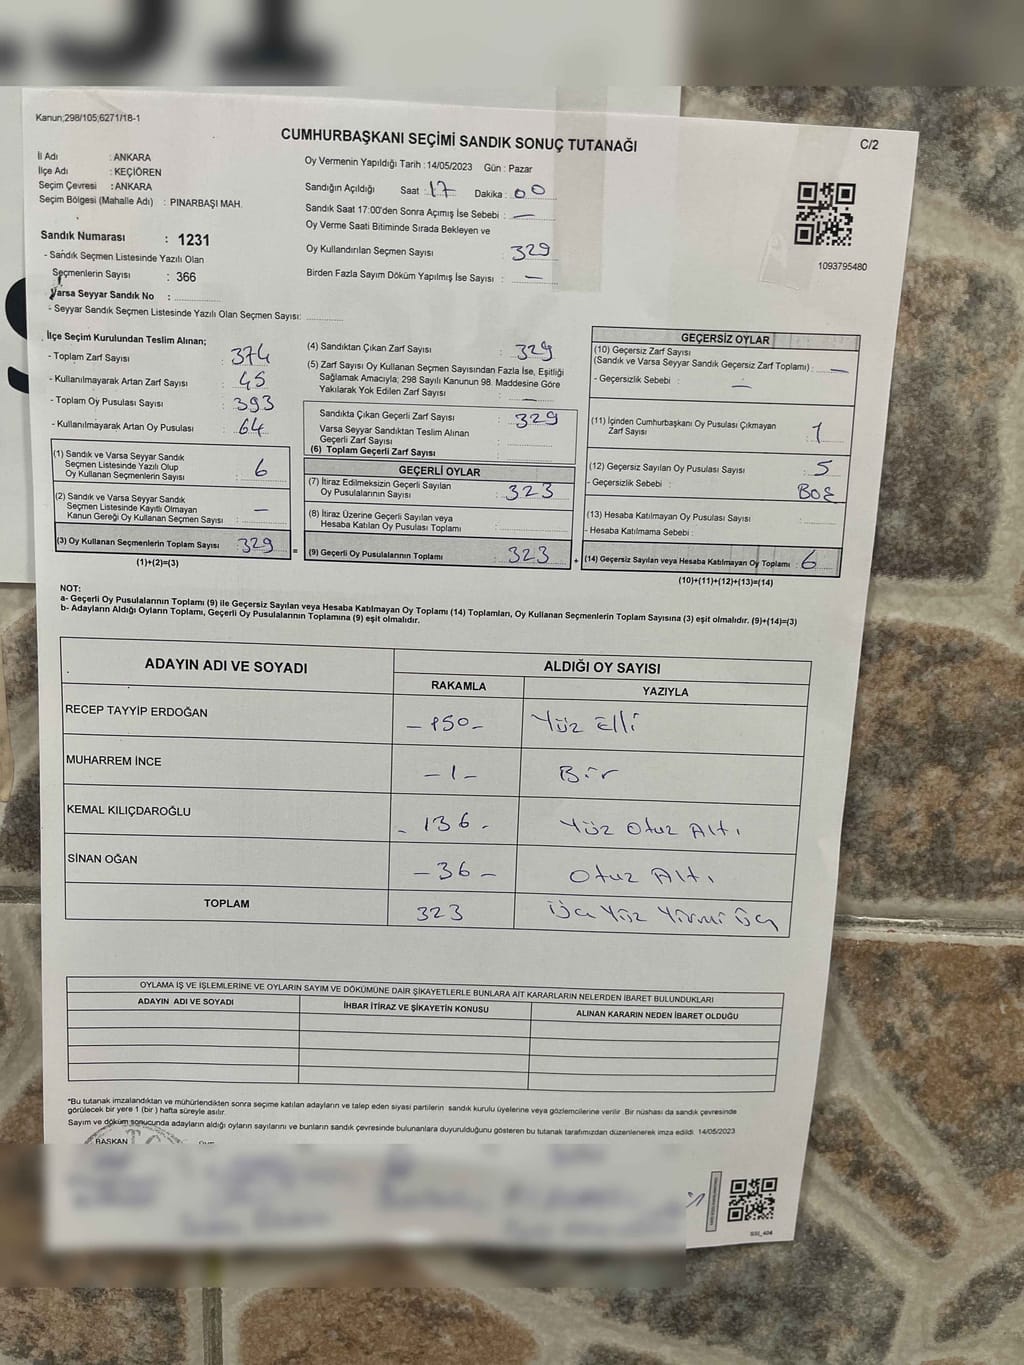 Kanun;298/105;6271/18-1
CUMHURBAŞKANI SEÇİMİ SANDIK SONUÇ TUTANAĞI
C/2
İl Adı : ANKARA
İlçe Adı : KEÇİÖREN
Seçim Çevresi : ANKARA
Seçim Bölgesi (Mahalle Adı) : PINARBAŞI MAH.
Sandık Numarası : 1231
- Sandık Seçmen Listesinde Yazılı Olan
Seçmenlerin Sayısı : 366
Varsa Seyyar Sandık No :
- Seyyar Sandık Seçmen Listesinde Yazılı Olan Seçmen Sayısı:
Oy Vermenin Yapıldığı Tarih : 14/05/2023 Gün : Pazar
Sandığın Açıldığı Saat : 17 Dakika : 00
Sandık Saat 17:00'den Sonra Açımış İse Sebebi : —
Oy Verme Saati Bitiminde Sırada Bekleyen ve
Oy Kullandırılan Seçmen Sayısı 329
Birden Fazla Sayım Döküm Yapılmış İse Sayısı : —
1093795480
İlçe Seçim Kurulundan Teslim Alınan;
- Toplam Zarf Sayısı : 374
- Kullanılmayarak Artan Zarf Sayısı : 45
- Toplam Oy Pusulası Sayısı : 393
- Kullanılmayarak Artan Oy Pusulası : 64
(1) Sandık ve Varsa Seyyar Sandık
Seçmen Listesinde Yazılı Olup
Oy Kullanan Seçmenlerin Sayısı : 6
(2) Sandık ve Varsa Seyyar Sandık
Seçmen Listesinde Kayıtlı Olmayan
Kanun Gereği Oy Kullanan Seçmen Sayısı : —
(3) Oy Kullanan Seçmenlerin Toplam Sayısı : 329
(1)+(2)=(3)
=
(4) Sandıktan Çıkan Zarf Sayısı : 329
(5) Zarf Sayısı Oy Kullanan Seçmen Sayısından Fazla İse, Eşitliği
Sağlamak Amacıyla; 298 Sayılı Kanunun 98. Maddesine Göre
Yakılarak Yok Edilen Zarf Sayısı : —
Sandıkta Çıkan Geçerli Zarf Sayısı : 329
Varsa Seyyar Sandıktan Teslim Alınan
Geçerli Zarf Sayısı :
(6) Toplam Geçerli Zarf Sayısı :
GEÇERLİ OYLAR
(7) İtiraz Edilmeksizin Geçerli Sayılan
Oy Pusulalarının Sayısı : 323
(8) İtiraz Üzerine Geçerli Sayılan veya
Hesaba Katılan Oy Pusulası Toplamı :
(9) Geçerli Oy Pusulalarının Toplamı : 323
+
GEÇERSİZ OYLAR
(10) Geçersiz Zarf Sayısı
(Sandık ve Varsa Seyyar Sandık Geçersiz Zarf Toplamı) : —
- Geçersizlik Sebebi : —
(11) İçinden Cumhurbaşkanı Oy Pusulası Çıkmayan
Zarf Sayısı : 1
(12) Geçersiz Sayılan Oy Pusulası Sayısı : 5
- Geçersizlik Sebebi : BOŞ
(13) Hesaba Katılmayan Oy Pusulası Sayısı :
- Hesaba Katılmama Sebebi :
(14) Geçersiz Sayılan veya Hesaba Katılmayan Oy Toplamı : 6
(10)+(11)+(12)+(13)=(14)
NOT:
a- Geçerli Oy Pusulalarının Toplamı (9) ile Geçersiz Sayılan veya Hesaba Katılmayan Oy Toplamı (14) Toplamları, Oy Kullanan Seçmenlerin Toplam Sayısına (3) eşit olmalıdır. (9)+(14)=(3)
b- Adayların Aldığı Oyların Toplamı, Geçerli Oy Pusulalarının Toplamına (9) eşit olmalıdır.
ADAYIN ADI VE SOYADI ALDIĞI OY SAYISI
RAKAMLA YAZIYLA
RECEP TAYYİP ERDOĞAN - 150 - Yüz Elli
MUHARREM İNCE - 1 - Bir
KEMAL KILIÇDAROĞLU - 136 - Yüz Otuz Altı
SİNAN OĞAN - 36 - Otuz Altı
TOPLAM 323 Üç Yüz Yirmi Üç
OYLAMA İŞ VE İŞLEMLERİNE VE OYLARIN SAYIM VE DÖKÜMÜNE DAİR ŞİKAYETLERLE BUNLARA AİT KARARLARIN NELERDEN İBARET BULUNDUKLARI
ADAYIN ADI VE SOYADI İHBAR İTİRAZ VE ŞİKAYETİN KONUSU ALINAN KARARIN NEDEN İBARET OLDUĞU
*Bu tutanak imzalandıktan ve mühürlendikten sonra seçime katılan adayların ve talep eden siyasi partilerin sandık kurulu üyelerine veya gözlemcilerine verilir. Bir nüshası da sandık çevresinde
görülecek bir yere 1 (bir) hafta süreyle asılır.
Sayım ve döküm sonucunda adayların aldığı oyların sayılarını ve bunların sandık çevresinde bulunanlara duyurulduğunu gösteren bu tutanak tarafımızdan düzenlenerek imza edildi. 14/05/2023
BAŞKAN
SSI_404